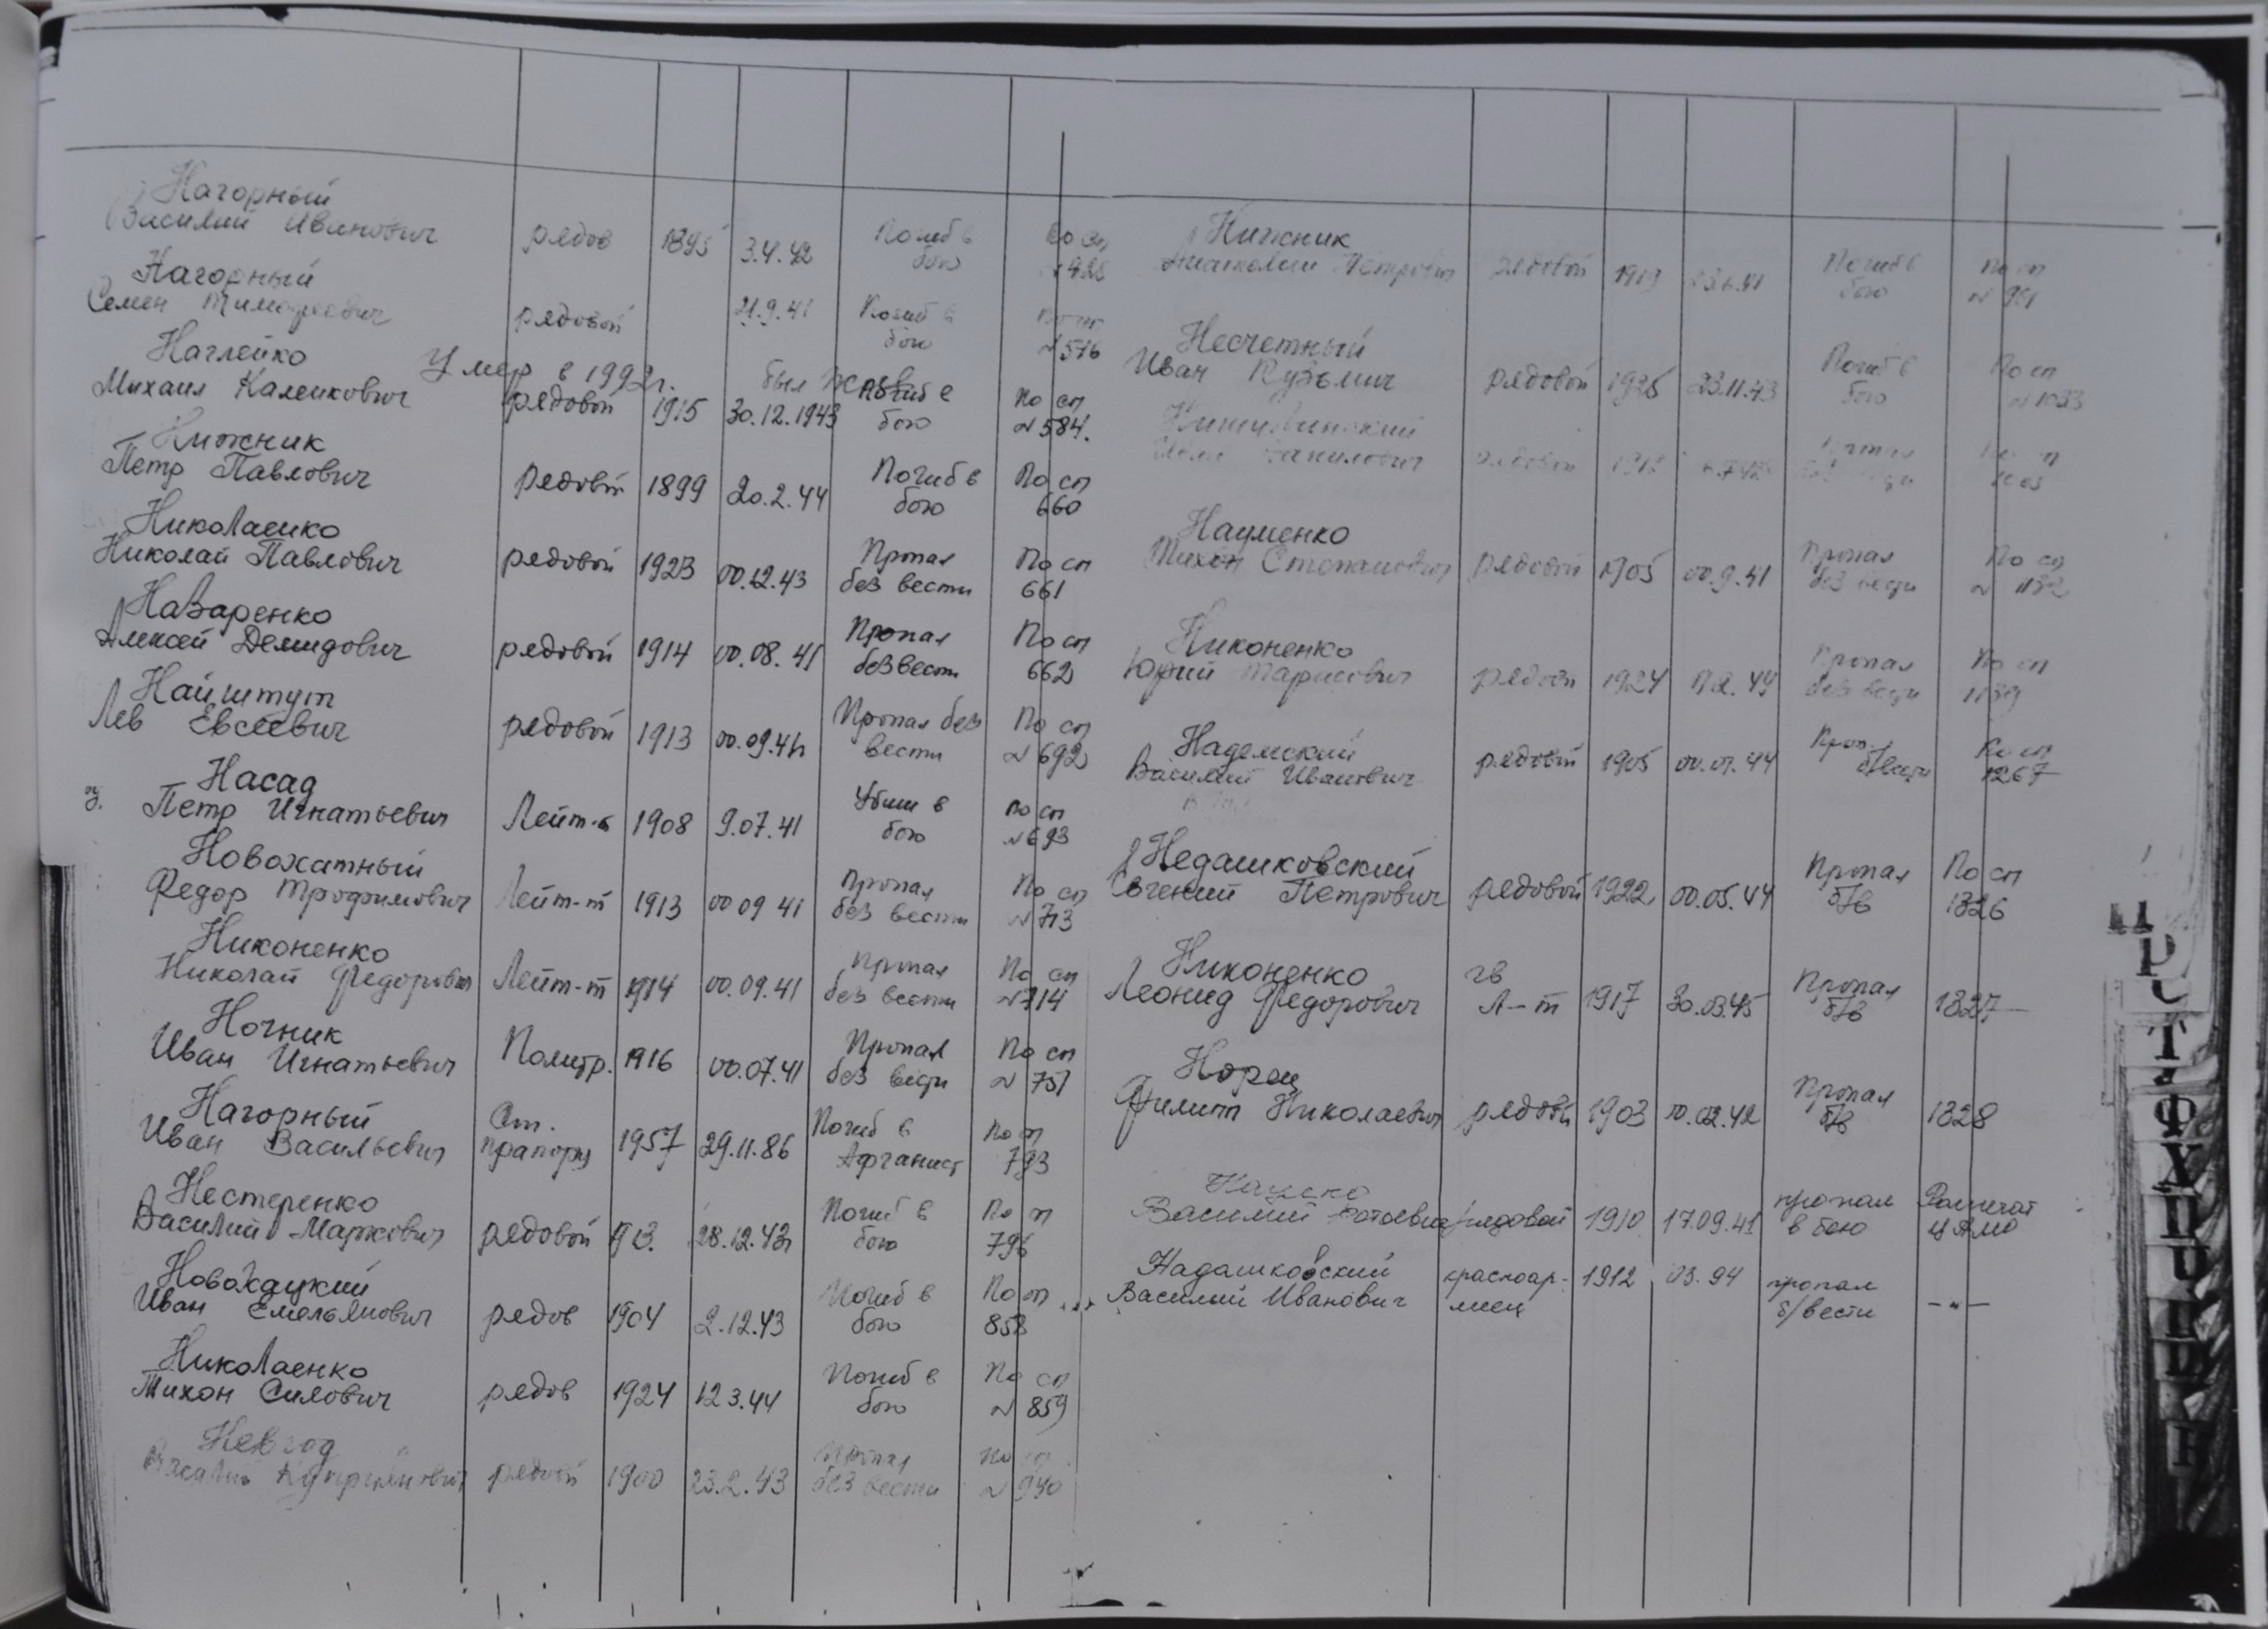 Нагорный
Василий Иванович рядов 1895 3.4.42 Погиб в бою По сп
Нагорный
Семен Тимофеевич рядовой 21.9.41 Погиб в бою №576
Наглейко Умер в 1992г. был жив
Михаил Каленкович рядовой 1915 30.12.1943 Погиб в бою По сп №584.
Нижник
Петр Павлович рядовой 1899 20.2.44 Погиб в бою По сп 660
Николаенко
Николай Павлович рядовой 1923 00.12.43 Пропал без вести По сп 661
Назаренко
Алексей Демидович рядовой 1914 00.08.41 Пропал без вести По сп 662
Найштут
Лев Евсеевич рядовой 1913 00.09.41 Пропал без вести По сп №692
Насад
Петр Игнатьевич Лейт-т 1908 9.07.41 Убит в бою По сп №693
Новохатный
Федор Трофимович Лейт-т 1913 00 09 41 Пропал без вести По сп №713
Никоненко
Николай Федорович Лейт-т 1914 00.09.41 Пропал без вести По сп №714
Ночник
Иван Игнатьевич Политр. 1916 00.07.41 Пропал без вести По сп №757
Нагорный
Иван Васильевич Ст. прапорщ 1957 29.11.86 Погиб в Афганист По сп 793
Нестеренко
Василий Маркович рядовой 1913. 28.12.43 Погиб в бою По сп 796
Новохацкий
Иван Емельянович рядов 1904 2.12.43 Погиб в бою По сп 858
Николаенко
Тихон Силович рядов 1924 12 3.44 Погиб в бою По сп №859
Невгод
Василь рядовой 1900 23.2.43 Пропал без вести По сп №940
Нижник
Петрович рядовой 1919 Погиб в бою По сп №961
Несчетный
Иван Кузьмич рядовой 1925 23.11.43 Погиб в бою По сп №1033
Данилович рядовой
Науменко
Тихон Степанович рядовой 1905 00.9.41 Пропал без вести По сп № 1132
Никоненко
Юрий Тарасович рядовой 1924 Пропал без вести По сп 1139
Надемский
Василий Иванович рядовой 1905 00.01.44 Проп. б/вести По сп 1267
Недашковский
Евгений Петрович рядовой 1922 00.05.44 Пропал б/в По сп 1326
Никоненко
Леонид Федорович гв Л-т 1917 30.03.45 Пропал б/в 1327
Норец
Филипп Николаевич рядовой 1903 00.02.42 Пропал б/в 1328
Василий рядовой 1910 17.09.41 пропал в бою Распечат ЦАМО
Надашковский
Василий Иванович красноар-мец 1912 03.94 пропал б/вести -"-
Ц
Р
С
Т
Ф
Х